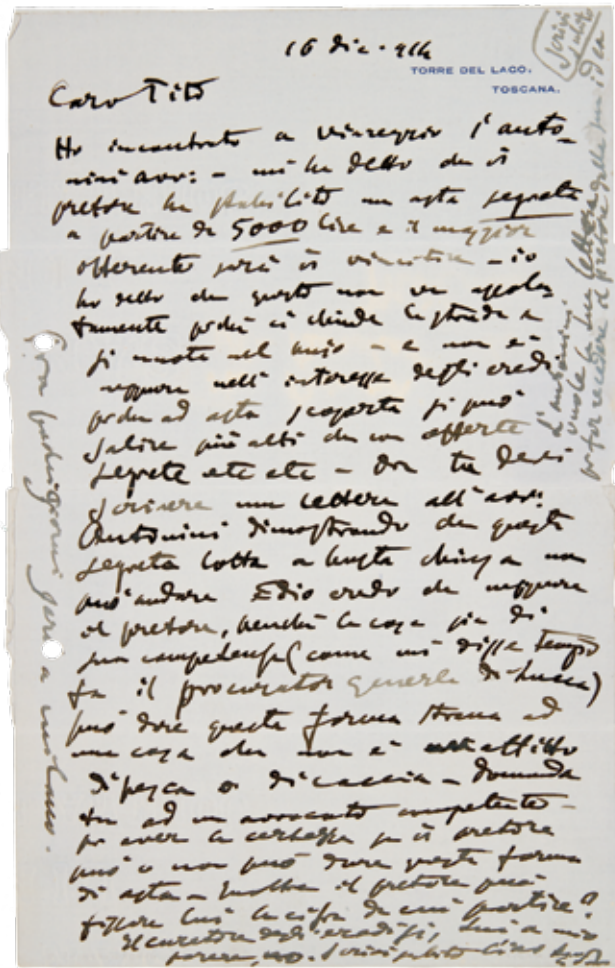 16 Dic. 914
TORRE DEL LAGO.
TOSCANA.
Scrivi
subito
Caro Tito
Ho incontrato a Viareggio l'anto-
nini avv: - mi ha detto che il
pretore ha stabilito un asta segreta
a partire da 5000 lire e il maggior
offerente sarà il vincitore - io
ho detto che questo non va assolu
tamente perché ci chiude la strada a
noi - e non è
neppure nell'interesse degli eredi
perché ad asta scoperta si può
salire più alti che con offerte
segrete etc etc - Ora tu devi
scrivere una lettera all'avv:
Antonini dimostrando che questa
segreta lotta a busta chiusa non
può andare Ed io credo che neppure
il pretore, benché la cosa sia di
sua competenza (come mi disse tempo
fa il procurator generale di Lucca)
può dare questa forma strana ad
una cosa che non è affitto
di pesca o di caccia - Domanda
tu ad un avvocato competente -
per aver la certezza se il pretore
può o non può dare questa forma
di asta - Inoltre il pretore può
fissare lui la cifra da cui partire?
Il curatore degli eredi si, lui a mio
parere, no. Scrivi subito Ciao
L'antonini
vuole la tua lettera
per far recedere il pretore dalla sua idea
Fra pochi giorni sarò a Milano.